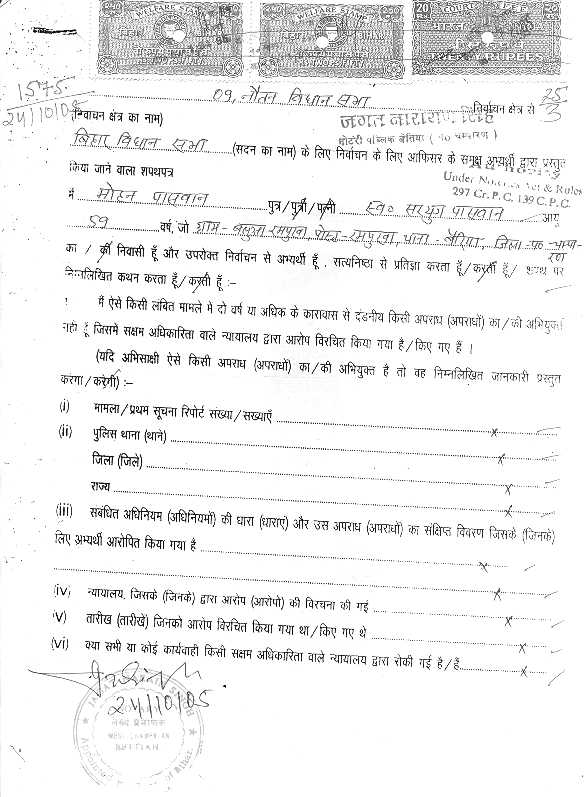 WELFARE STAMP
WELFARE STAMP
COURT FEE
बिहार
बिहार
भारत
RUPEES
1575
24/10/05
09, नौतन विधान सभा निर्वाचन क्षेत्र से
25
3
(निर्वाचन क्षेत्र का नाम)
जगत नारायण सिंह
नोटरी पब्लिक बेतिया (प० चम्पारण)
बिहार विधान सभा (सदन का नाम) के लिए निर्वाचन के लिए आफिसर के समक्ष अभ्यर्थी द्वारा प्रस्तुत
किया जाने वाला शपथपत्र
Under Notaries Act & Rules
297 Cr. P. C. 139 C. P. C.
मैं मोहन पासवान पुत्र/पुत्री/पत्नी स्व० सरयुग पासवान आयु
59 वर्ष, जो ग्राम- रमपुरवा, पोस्ट-रमपुरवा, थाना- बैरिया, जिला-प०-चम्पा-
रण
का / की निवासी हूँ और उपरोक्त निर्वाचन से अभ्यर्थी हूँ , सत्यनिष्ठा से प्रतिज्ञा करता हूँ/करती हूँ/ शपथ पर
निम्नलिखित कथन करता हूँ/करती हूँ :-
मैं ऐसे किसी लंबित मामले मे दो वर्ष या अधिक के कारावास से दंडनीय किसी अपराध (अपराधों) का/की अभियुक्त
नहीं हूँ जिसमे सक्षम अधिकारिता वाले न्यायालय द्वारा आरोप विरचित किया गया है/किए गए हैं ।
(यदि अभिसाक्षी ऐसे किसी अपराध (अपराधों) का/की अभियुक्त है तो वह निम्नलिखित जानकारी प्रस्तुत
करेगा/करेगी) :-
(i) मामला/प्रथम सूचना रिपोर्ट संख्या/सख्याएँ x
(ii) पुलिस थाना (थाने) x
जिला (जिले) x
राज्य x
(iii) संबंधित अधिनियम (अधिनियमों) की धारा (धाराएं) और उस अपराध (अपराधों) का संक्षिप्त विवरण जिसके (जिनके)
लिए अभ्यर्थी आरोपित किया गया है x
x
(iv) न्यायालय, जिसके (जिनके) द्वारा आरोप (आरोपो) की विरचना की गई x
(v) तारीख (तारीखें) जिनको आरोप विरचित किया गया था/किए गए थे x
(vi) क्या सभी या कोई कार्यवाही किसी सक्षम अधिकारिता वाले न्यायालय द्वारा रोकी गई है/हैं x
24/10/05
NOTARY
WEST CHAMPARAN
BETTIAH